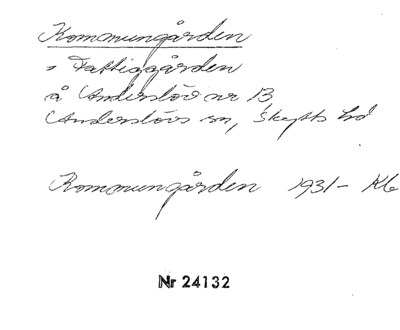 Kommungården
= Fattiggården
å Anderslöv nr 13
Anderslövs sn, Skytts hd
Kommungården 1931- Kb
Nr 24132